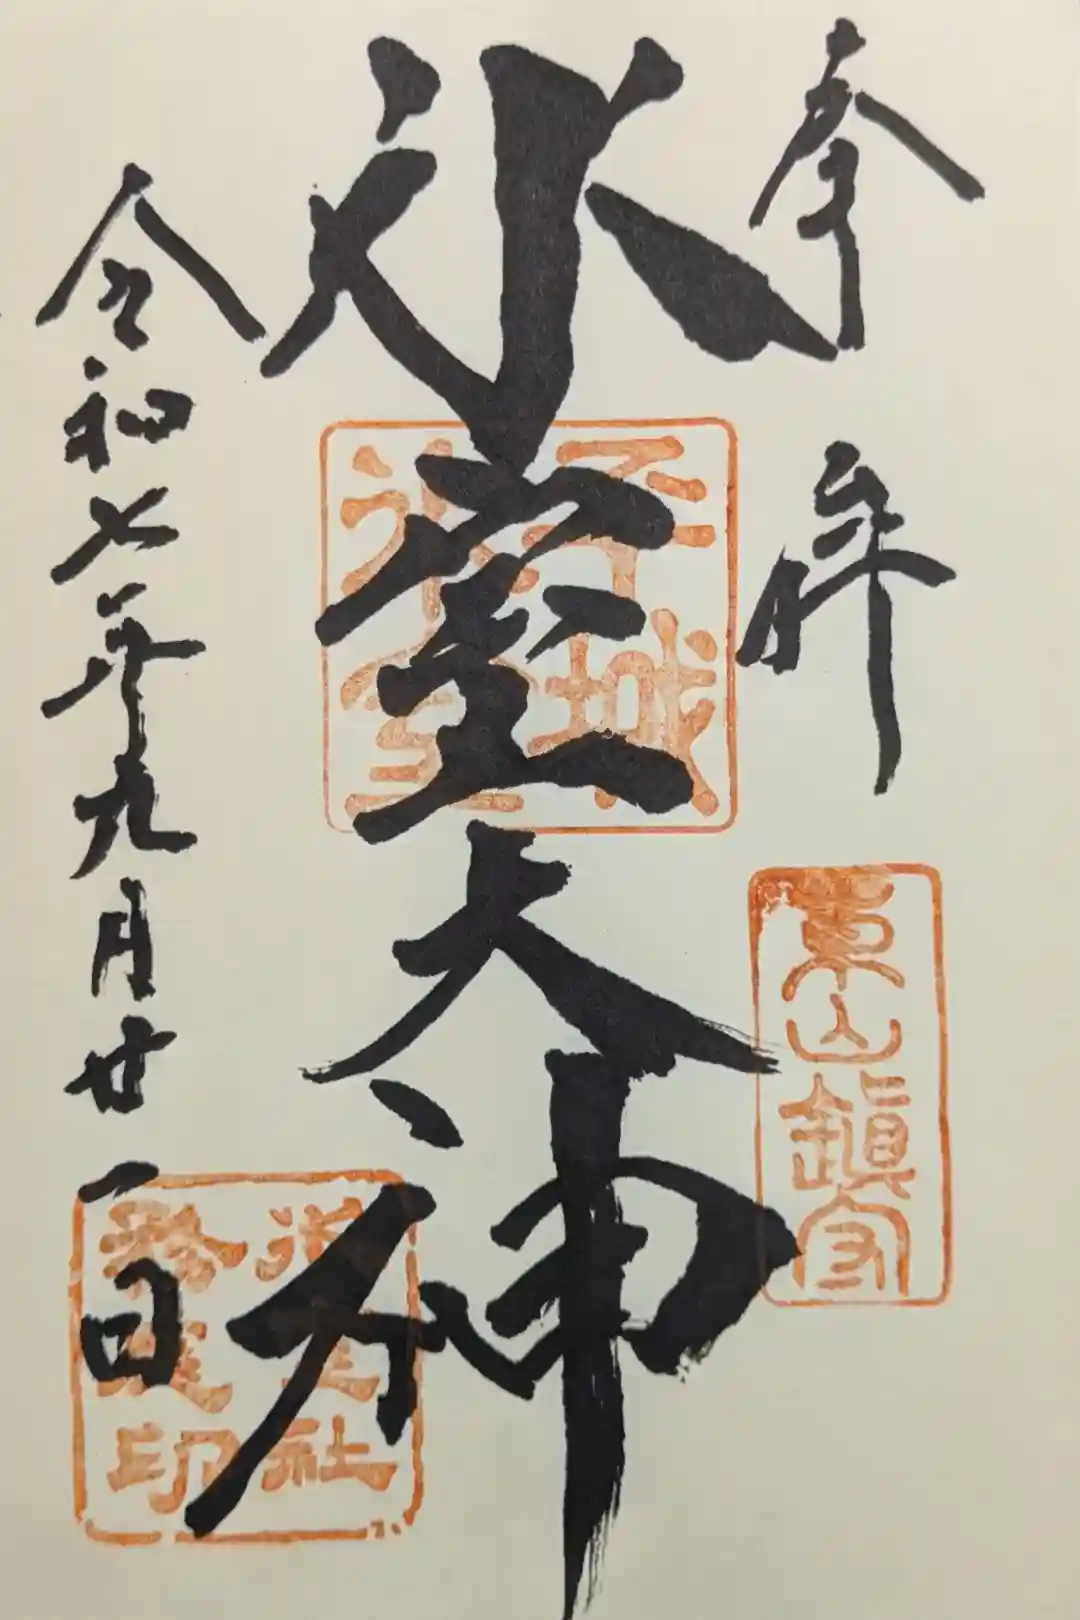 奉拝
東山鎮守
氷室大神
平城
氷室
令和七年九月廿一日
氷室社
印